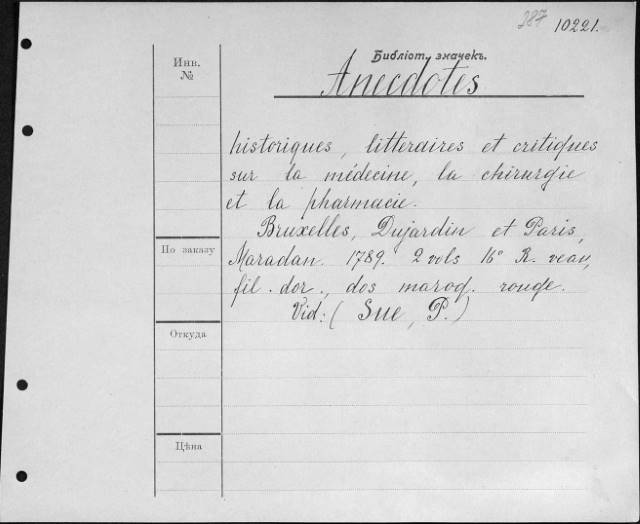 387 10221.
Инв. №
Библіот. значекъ.
Anecdotes
historiques, litteraires et critiques
sur la médecine, la chirurgie
et la pharmacie.
Bruxelles, Dujardin et Paris,
По заказу
Maradan. 1789. 2 vols 16° R. veau,
fil. dor., dos maroq. rouge.
Vid: (Sue, P.)
Откуда
Цѣна